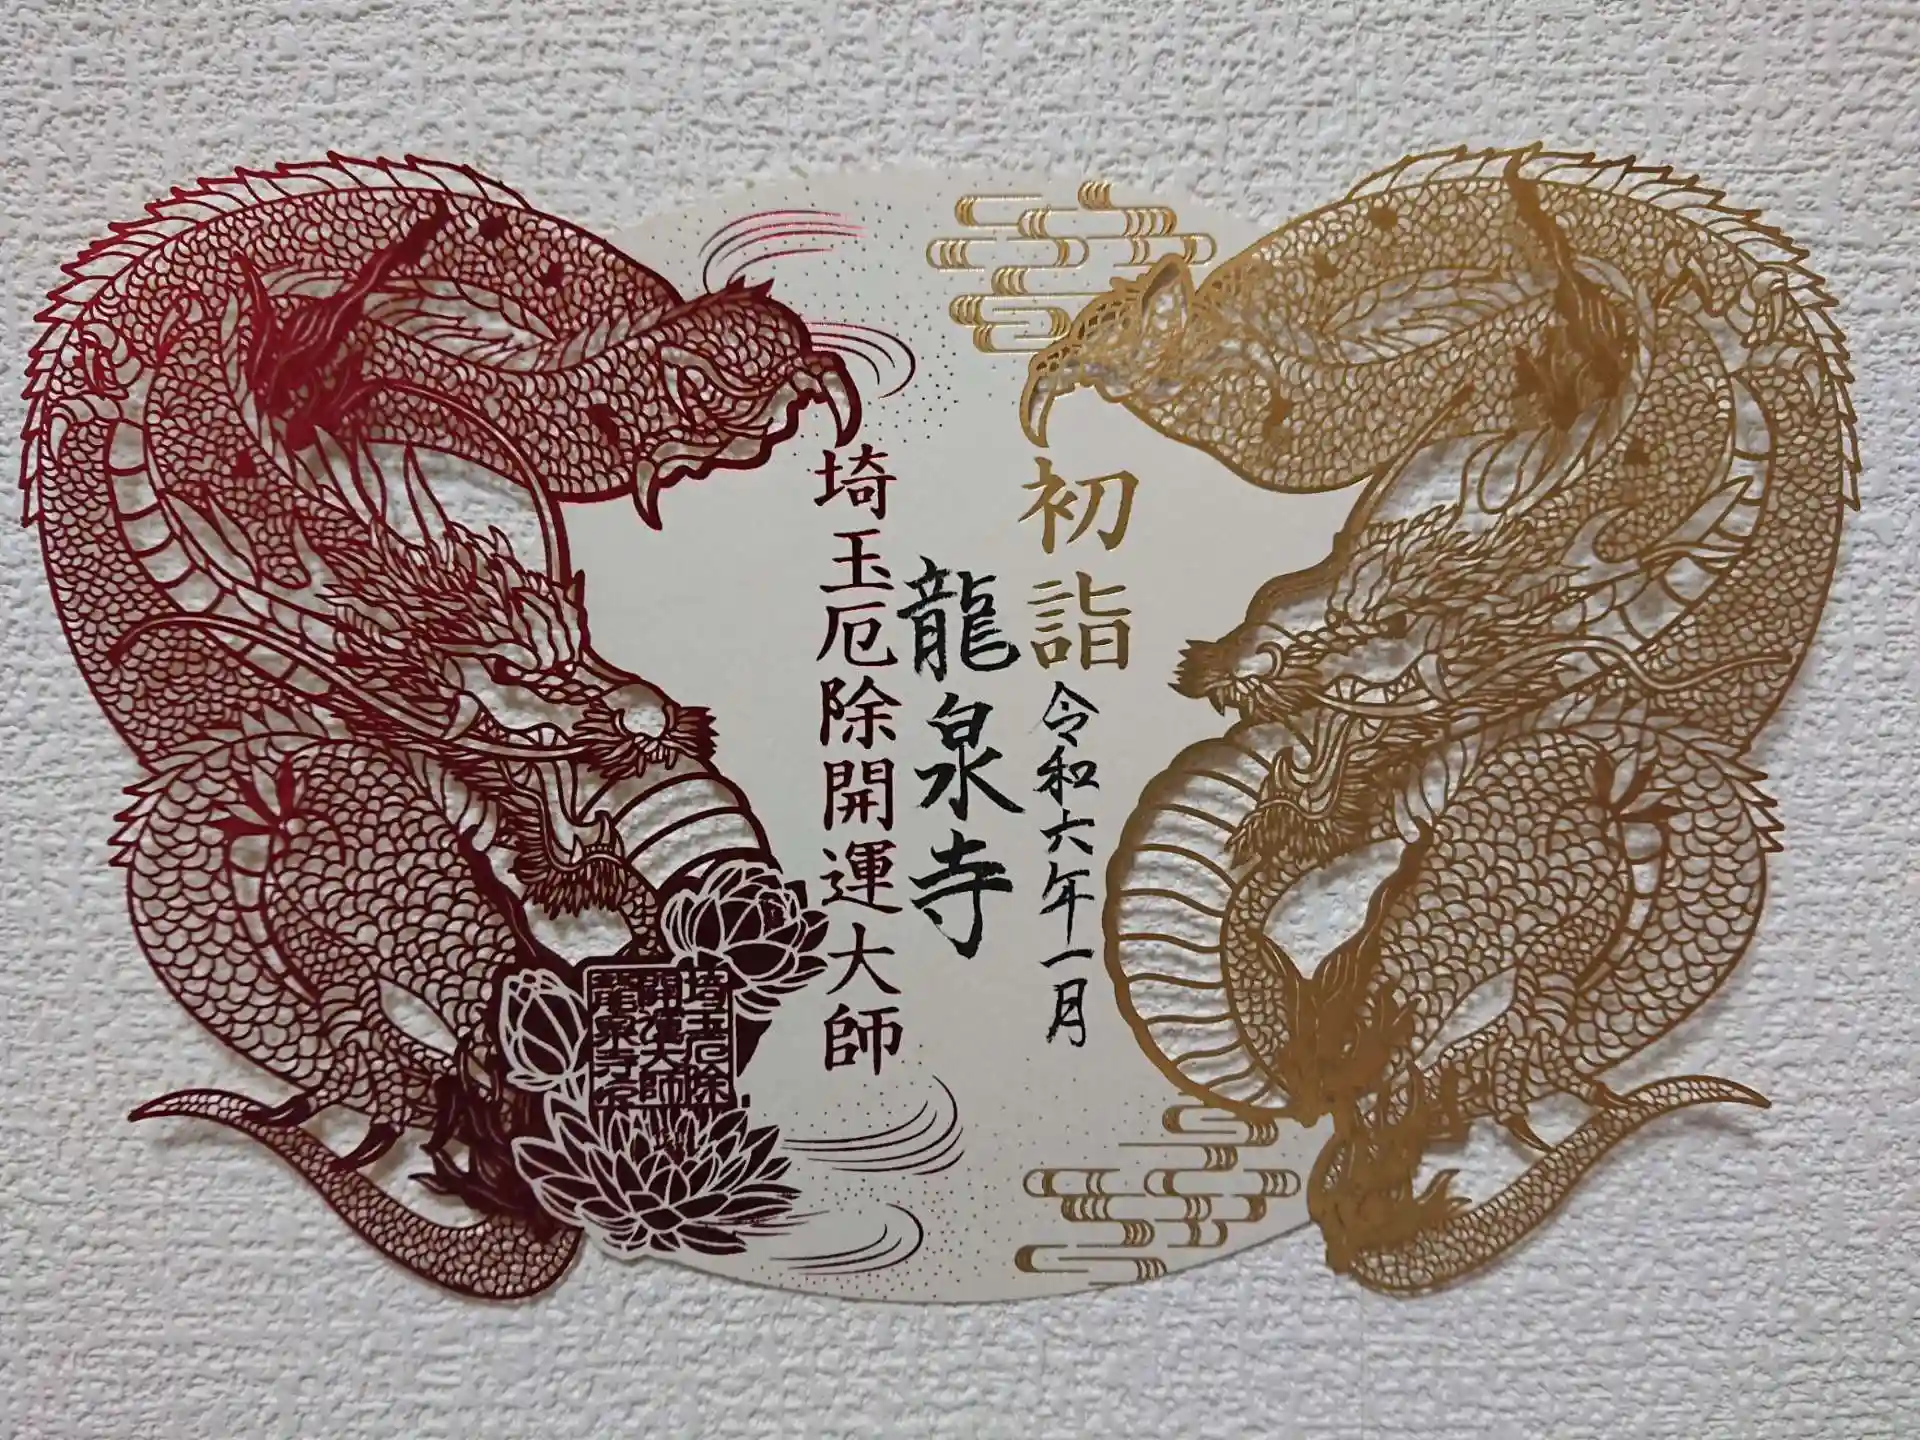 初詣
令和六年一月
龍泉寺
埼玉厄除開運大師
埼玉厄除
開運大師
龍泉寺